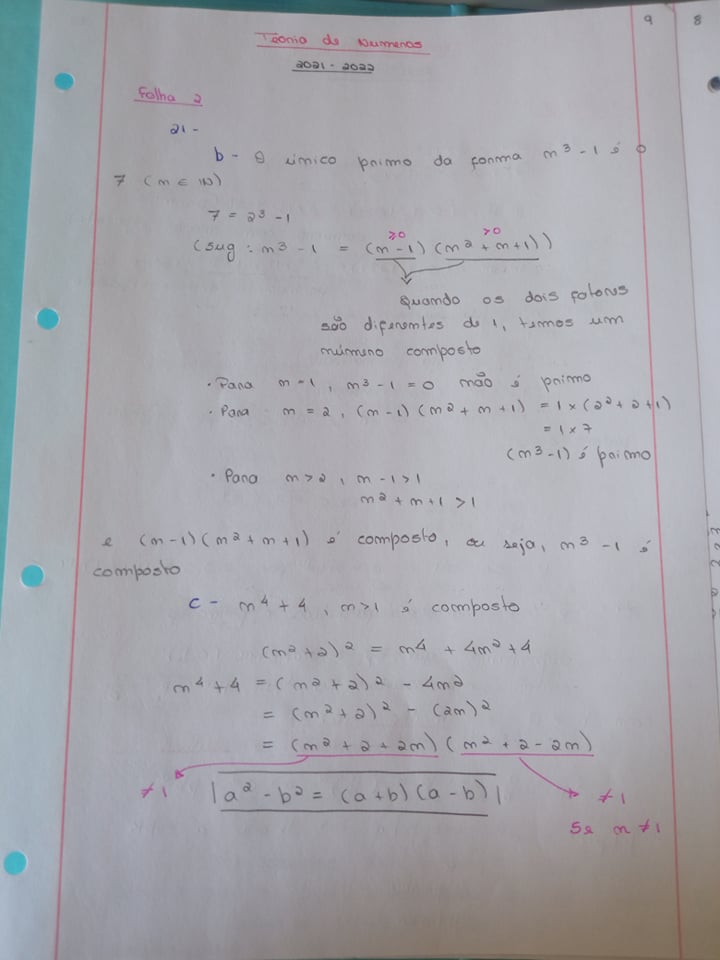 9 8
Teoria de Números
2021 - 2022
Folha 2
21 -
b - O único primo da forma n³ - 1 é o
7 (n ∈ IN)
7 = 2³ - 1
≥0 >0
(sug : n³ - 1 = (n - 1) (n² + n + 1))
Quando os dois fatores
são diferentes de 1, temos um
número composto
• Para n = 1, n³ - 1 = 0 não é primo
• Para n = 2, (n - 1) (n² + n + 1) = 1 × (2² + 2 + 1)
= 1 × 7
(n³ - 1) é primo
• Para n > 2, n - 1 > 1
n² + n + 1 > 1
e (n - 1) (n² + n + 1) é composto, ou seja, n³ - 1 é
composto
c - n⁴ + 4, n > 1 é composto
(n² + 2)² = n⁴ + 4n² + 4
n⁴ + 4 = (n² + 2)² - 4n²
= (n² + 2)² - (2n)²
= (n² + 2 + 2n) (n² + 2 - 2n)
≠ 1 |a² - b² = (a + b) (a - b)| ≠ 1
Se n ≠ 1